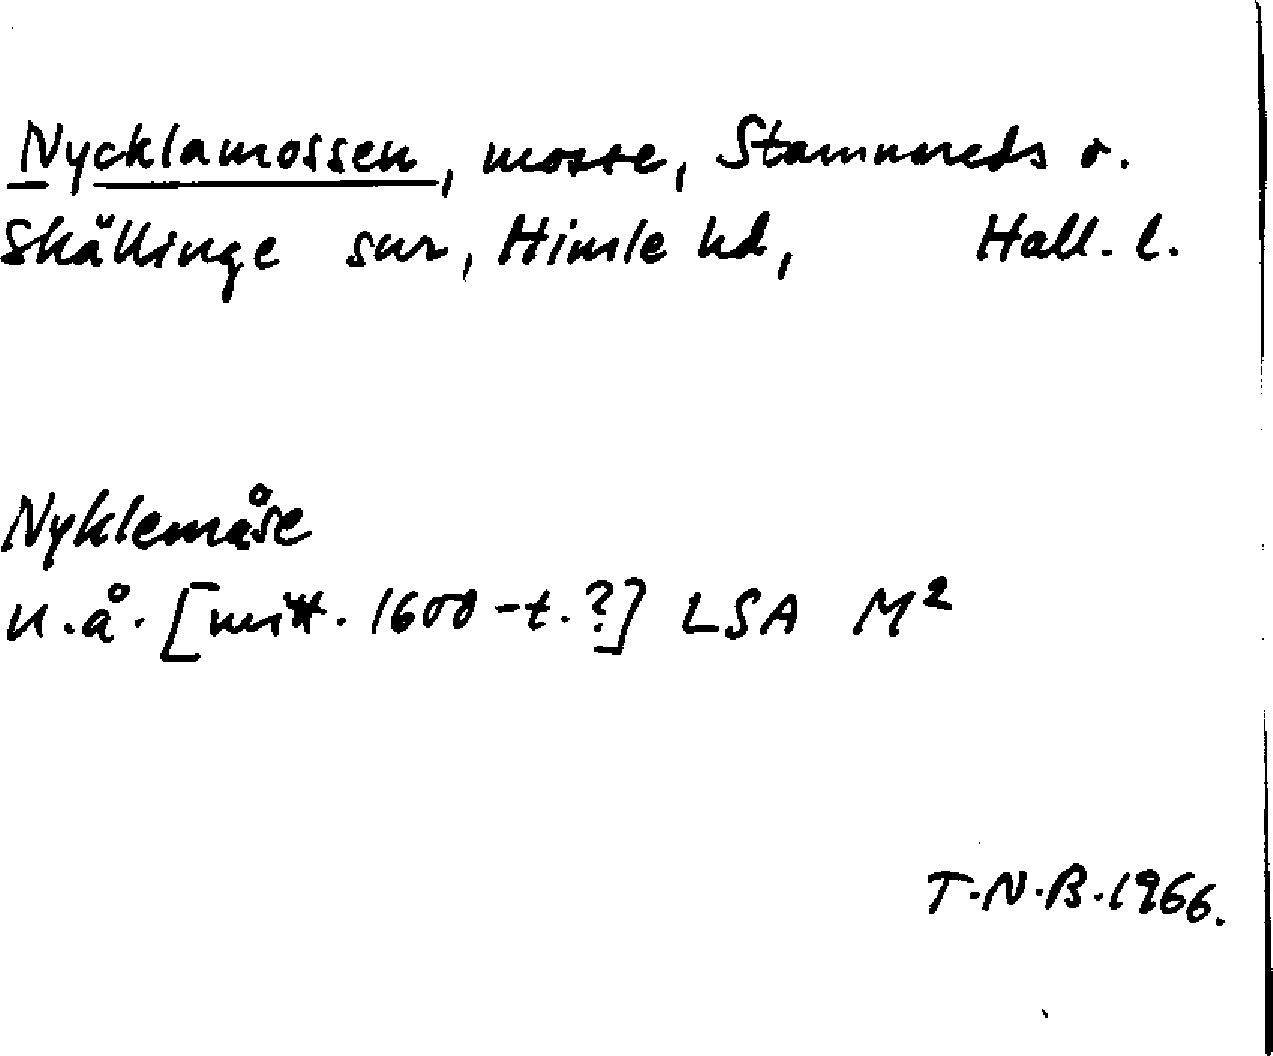 Nycklamossen, mosse, Stamnareds o.
Skällinge snr, Himle hd, Hall. l.
Nyklemåse
u.å. [mitt. 1600-t.?] LSA M²
T.N.B.1966.